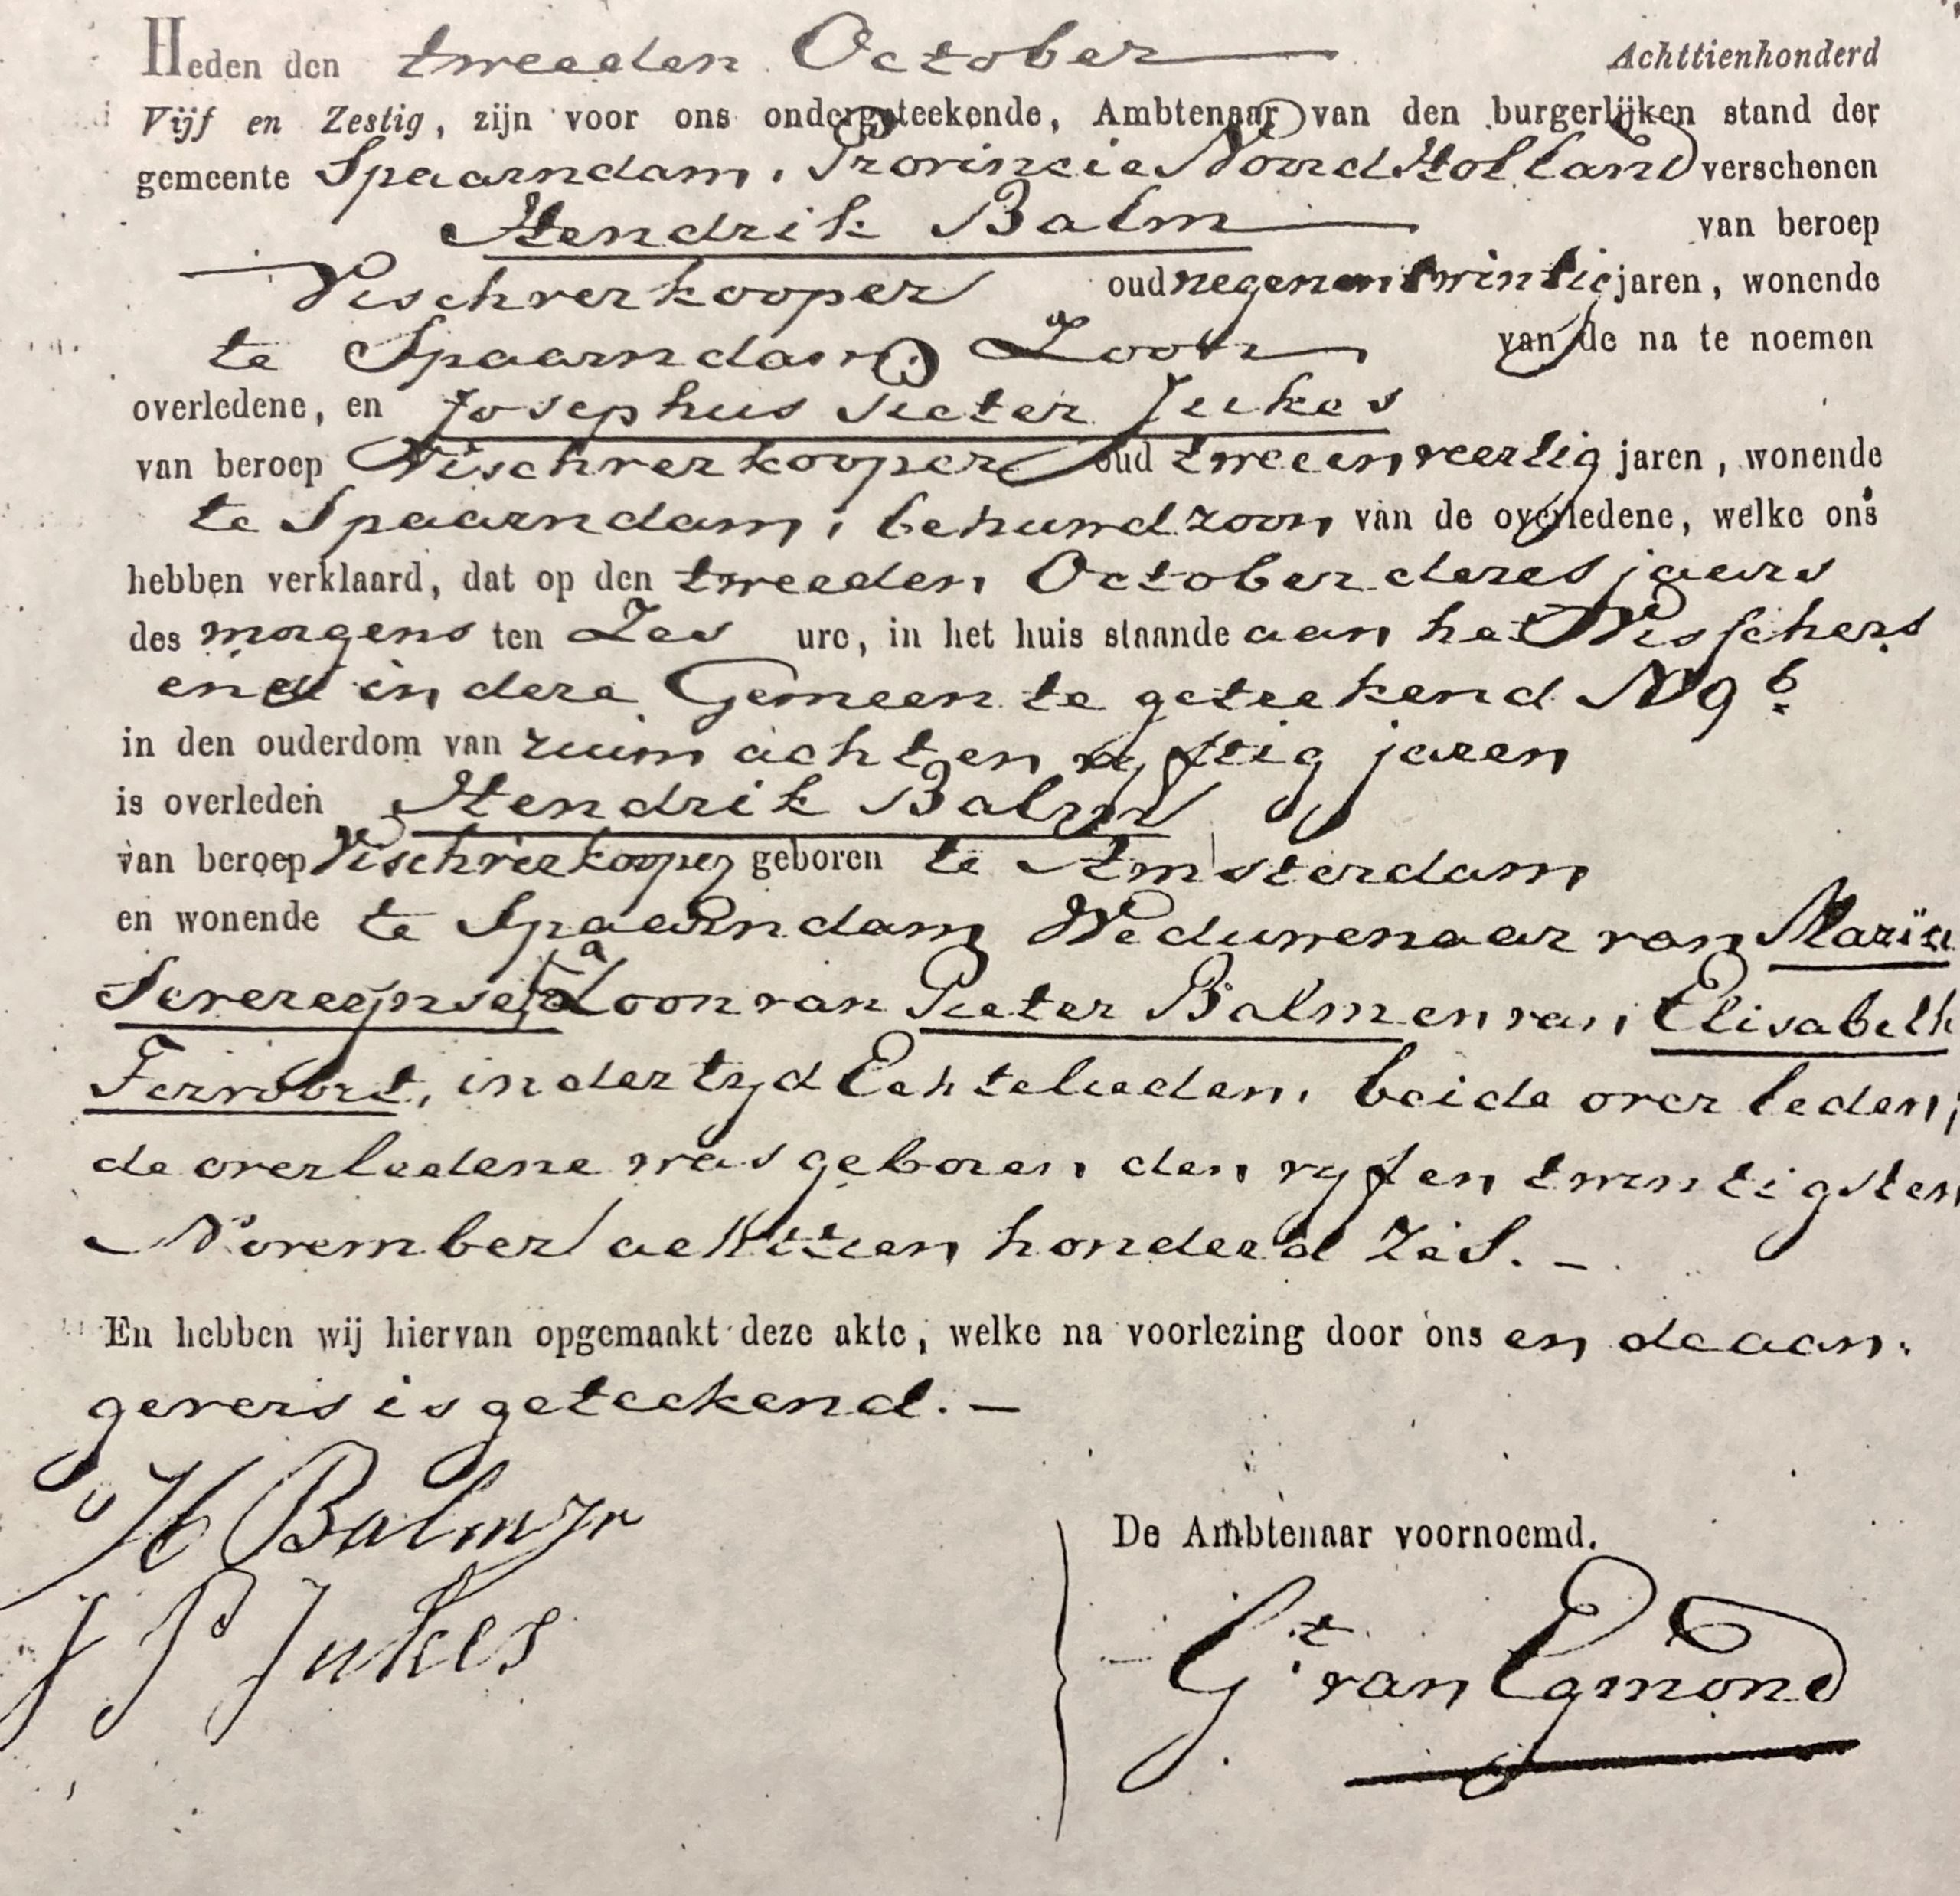 Heden den tweeden October Achttienhonderd
Vijf en Zestig, zijn voor ons ondergeteekende, Ambtenaar van den burgerlijken stand der
gemeente Spaarndam, Provincie Noord Holland verschenen
Hendrik Balm van beroep
Vischverkooper oud negenentwintig jaren, wonende
te Spaarndam, Zoon van de na te noemen
overledene, en Josephus Pieter Jukes
van beroep Vischverkooper oud tweeenveertig jaren, wonende
te Spaarndam, behuwdzoon van de overledene, welke ons
hebben verklaard, dat op den tweeden October dezes jaars
des morgens ten Zes ure, in het huis staande aan het Visschers
eind in deze Gemeente geteekend N 9 b
in den ouderdom van ruim achtenvyftig jaren
is overleden Hendrik Balm
van beroep Vischverkooper geboren te Amsterdam
en wonende te Spaarndam Weduwenaar van Maria
Zoon van Pieter Balm en van Elisabeth
in der tyd Echtelieden, beide overleden,
de overledene was geboren den vyfentwintigsten
November achttien honderd Zes. —
En hebben wij hiervan opgemaakt deze akte, welke na voorlezing door ons en de aan-
gevers is geteekend. —
H Balm Jr
J P Jukes
De Ambtenaar voornoemd.
Gt van Egmond